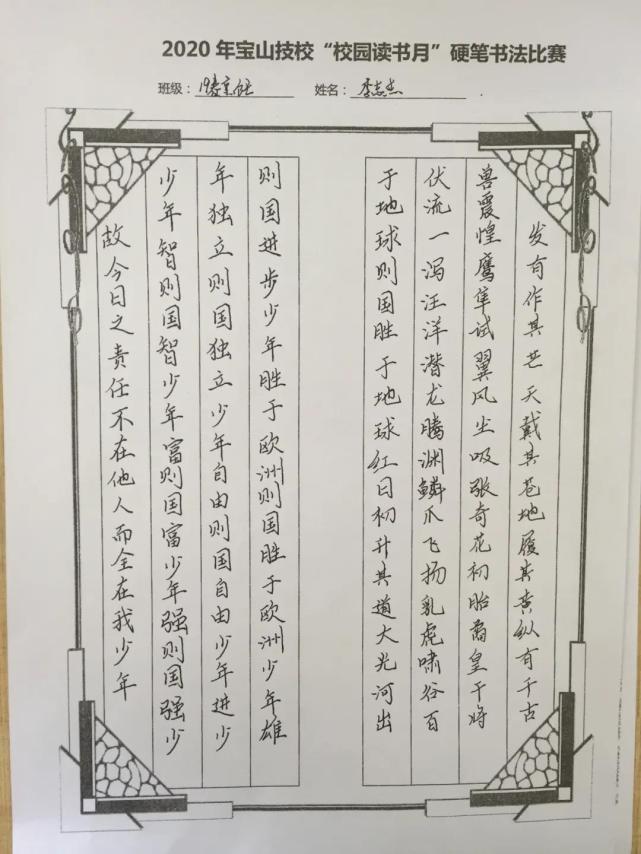 2020年宝山技校“校园读书月”硬笔书法比赛
班级： 姓名：李志杰
故今日之责任不在他人而全在我少年
少年智则国智少年富则国富少年强则国强少
年独立则国独立少年自由则国自由少年进少
则国进步少年胜于欧洲则国胜于欧洲少年雄
于地球则国胜于地球红日初升其道大光河出
伏流一泻汪洋潜龙腾渊鳞爪飞扬乳虎啸谷百
兽震惶鹰隼试翼风尘吸张奇花初胎矞皇干将
发有作其芒天戴其苍地履其黄纵有千古